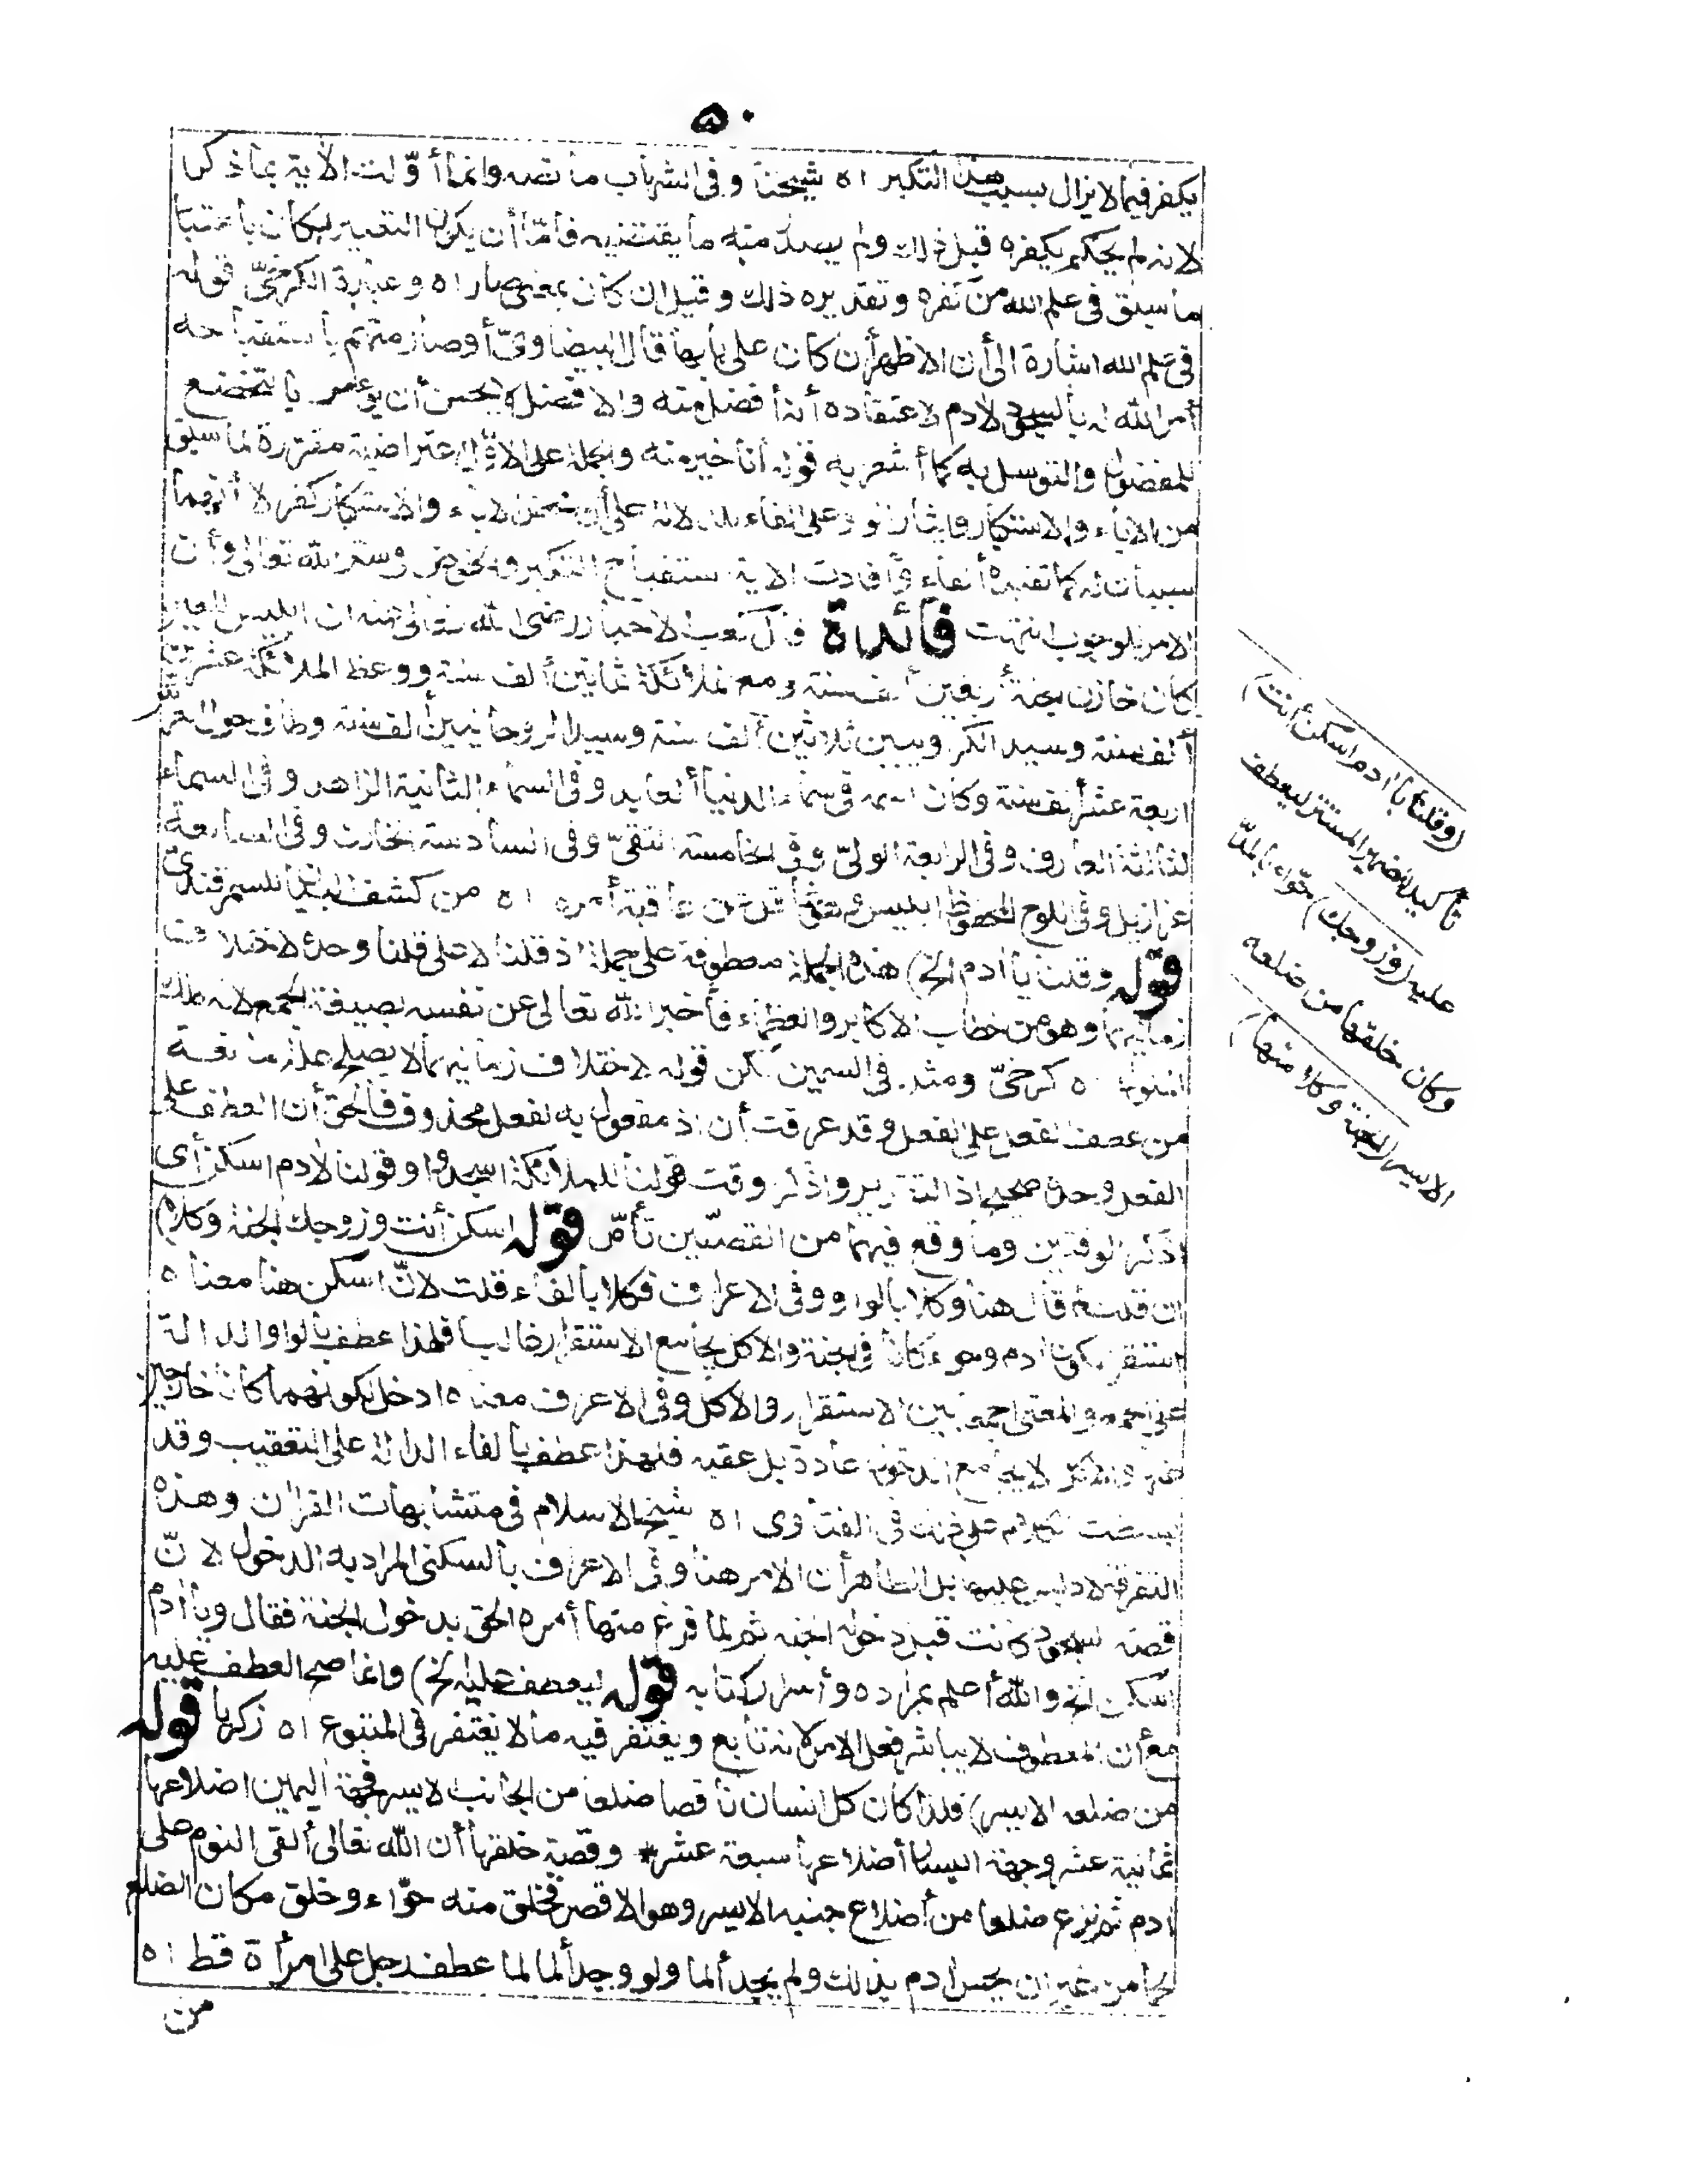 ٥٠
يكفر فيما لا يزال بسبب هذا التكبر اه شيخنا وفى الشهاب ما نصه وانما أوّلت الآية بما ذكر
لانه لم يحكم بكفره قبل ذلك ولم يصدر منه ما يقتضيه فأمّا أن يكون التعبير بكان باعتبار
ما سبق فى علم الله من كفره وتقديره ذلك وقيل ان كان بمعنى صار اه وعبارة الكرخىّ قوله
فى علم الله اشارة الى أن الاظهر أن كان على بابها قال البيضاوىّ أو صار منهم باستقباحه
أمر الله له بالسجود لآدم لاعتقاده أنه أفضل منه والافضل لا يحسن أن يؤمر بالتخضع
للمفضول والتوسل به كما أشعر به قوله أنا خير منه والجملة على الاوّل اعتراضية مقررة لما سبق
من الاباء والاستكبار وايثار الواو على الفاء للدلالة على أن محض الاباء والاستكبار كفر لا أنهما
سببان له كما تفيده الفاء وأفادت الآية استقباح التكبر والخوض فى سر الله تعالى وأن
الامر للوجوب انتهت فائدة قال كعب الاحبار رضى الله تعالى عنه ان ابليس اللعين
كان خازن الجنة أربعين ألف سنة ومع الملائكة ثمانين ألف سنة ووعظ الملائكة عشرين
ألف سنة وسيد الكروبيين ثلاثين ألف سنة وسيد الروحانيين ألف سنة وطاف حول العرش
اربعة عشر ألف سنة وكان اسمه فى سماء الدنيا العابد وفى السماء الثانية الزاهد وفى السماء
الثالثة العارف وفى الرابعة الولىّ وفى الخامسة التقىّ وفى السادسة الخازن وفى السابعة
عزازيل وفى اللوح المحفوظ ابليس وهو غافل عن عاقبة أمره اه من كشف البيان للسمرقندىّ
قوله وقلنا يا آدم الخ) هذه الجملة معطوفة على جملة اذ قلنا لا على قلنا وحده لاختلاف
زمانيهما وهو من خطاب الاكابر والعظماء فأخبر الله تعالى عن نفسه بصيغة الجمع لانه ملك
الملوك اه كرخىّ ومثله فى السمين لكن قوله لاختلاف زمانيهما لا يصلح علة مانعة
من عطف الفعل على الفعل وقد عرفت أن اذ مفعول به لفعل محذوف فالحق أن العطف على
الفعل وحده صحيح اذ التقدير واذكر وقت قولنا للملائكة اسجدوا وقولنا لآدم اسكن أى
اذكر الوقتين وما وقع فيهما من القصتين تأمّل قوله اسكن أنت وزوجك الجنة وكلا)
ان قلت لم قال هنا وكلا بالواو وفى الاعراف فكلا بالفاء قلت لانّ اسكن هنا معناه
استقر لكون آدم وحواء كانا فى الجنة والاكل يجامع الاستقرار غالبا فلهذا عطف بالواو الدالة
على الجمع والمعنى اجمعا بين الاستقرار والاكل وفى الاعراف معناه ادخل لكونهما كانا خارجين
عنها والاكل لا يجامع الدخول عادة بل عقبه فلهذا عطف بالفاء الدالة على التعقيب وقد
بسطت الكلام على ذلك فى الفتاوى اه شيخ الاسلام فى متشابهات القرآن وهذه
التفرقة لا دليل عليها بل الظاهر أن الامر هنا وفى الاعراف بالسكنى المراد به الدخول لانّ
قصة السجود كانت قبل دخوله الجنة ثم لما فرغ منها أمره الحق بدخول الجنة فقال ويا آدم
اسكن الخ والله أعلم بمراده وأسرار كتابه قوله ليعطف عليه الخ) وانما صح العطف عليه
مع أن المعطوف لا يباشر فعل الامر لانه تابع ويغتفر فيه ما لا يغتفر فى المتبوع اه زكريا قوله
من ضلعه الايسر) فلذا كان كل انسان ناقصا ضلعا من الجانب الايسر فجهة اليمين اضلاعها
ثمانية عشر وجهة اليسار أضلاعها سبعة عشر * وقصة خلقها أن الله تعالى ألقى النوم على
آدم ثم نزع ضلعا من أضلاع جنبه الايسر وهو الاقصر فخلق منه حوّاء وخلق مكان الضلع
لحما من غير ان يحس آدم بذلك ولم يجد ألما ولو وجد ألما لما عطف رجل على امرأة قط اه
من
(وقلنا يا آدم اسكن أنت)
تأكيد للضمير المستتر ليعطف
عليه (وزوجك) حوّاء بالمدّ
وكان خلقها من ضلعه
الايسر (الجنة وكلا منها)